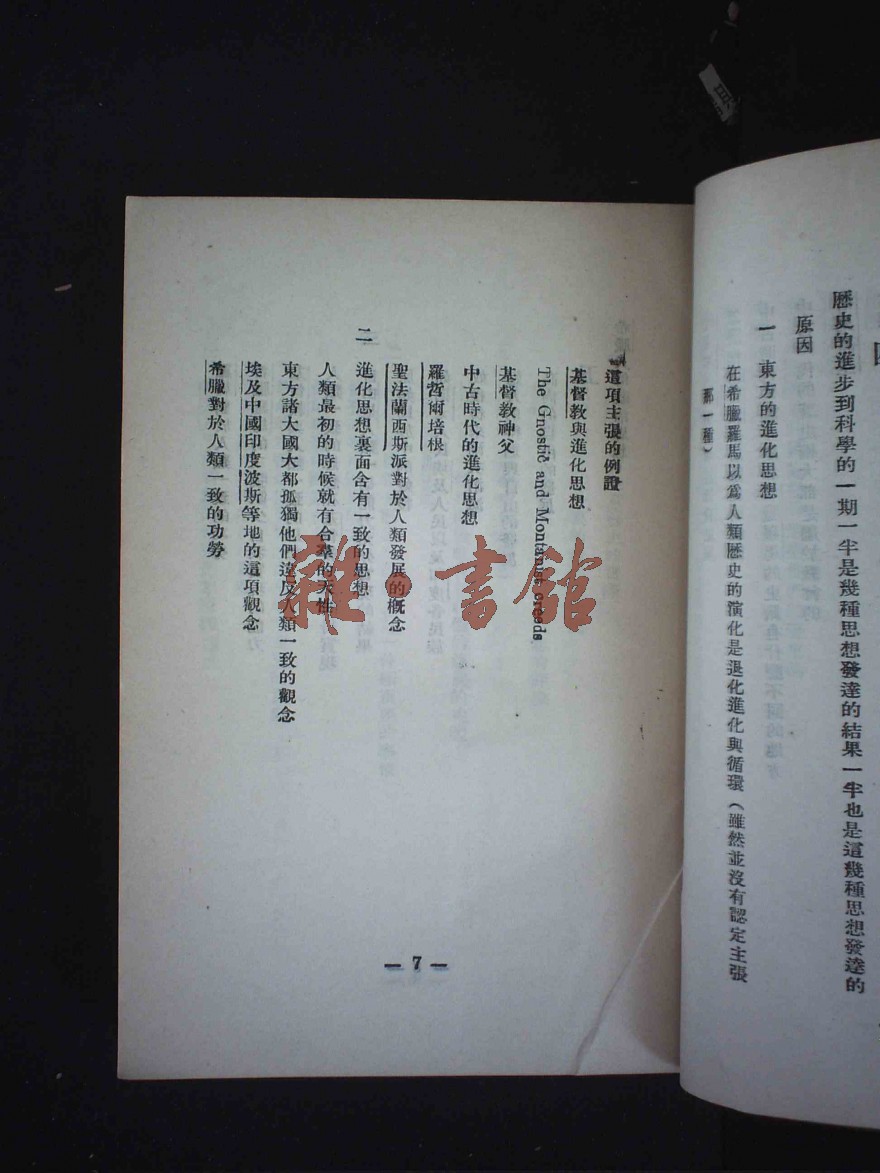 歷史的進步到科學的一期一半是幾種思想發達的結果一半也是這幾種思想發達的
原因
一 東方的進化思想
在希臘羅馬以為人類歷史的演化是退化進化與循環（雖然並沒有認定主張
那一種）
這項主張的例證
基督教與進化思想
The Gnostic and Montanist creeds
基督教神父
中古時代的進化思想
羅哲爾培根
聖法蘭西斯派對於人類發展的概念
二 進化思想裏面含有一致的思想
人類最初的時候就有合羣的天性
東方諸大國大都孤獨他們違反人類一致的觀念
埃及中國印度波斯等地的這項觀念
希臘對於人類一致的功勞
— 7 —
雜·書館